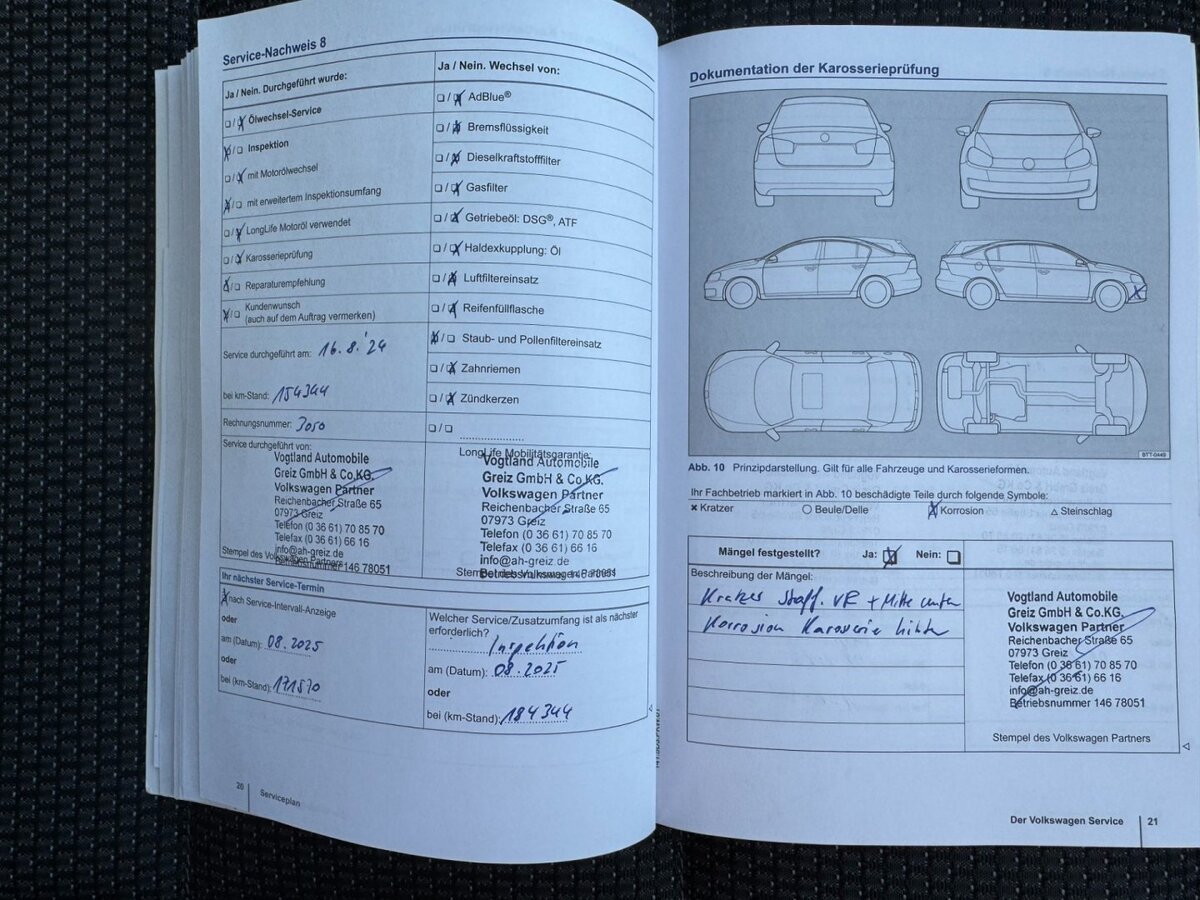 Service-Nachweis 8
Ja / Nein. Durchgeführt wurde:
❏ / ❏ Ölwechsel-Service
❏ / ❏ Inspektion
❏ / ❏ mit Motorölwechsel
❏ / ❏ mit erweitertem Inspektionsumfang
❏ / ❏ LongLife Motoröl verwendet
❏ / ❏ Karosserieprüfung
❏ / ❏ Reparaturempfehlung
❏ / ❏ Kundenwunsch
(auch auf dem Auftrag vermerken)
Service durchgeführt am: 16.8.'24
bei km-Stand: 154344
Rechnungsnummer: 3050
Service durchgeführt von:
Vogtland Automobile
Greiz GmbH & Co.KG.
Volkswagen Partner
Reichenbacher Straße 65
07973 Greiz
Telefon (0 36 61) 70 85 70
Telefax (0 36 61) 66 16
info@ah-greiz.de
Betriebsnummer 146 78051
Stempel des Volkswagen Partners
Ja / Nein. Wechsel von:
❏ / ❏ AdBlue®
❏ / ❏ Bremsflüssigkeit
❏ / ❏ Dieselkraftstofffilter
❏ / ❏ Gasfilter
❏ / ❏ Getriebeöl: DSG®, ATF
❏ / ❏ Haldexkupplung: Öl
❏ / ❏ Luftfiltereinsatz
❏ / ❏ Reifenfüllflasche
❏ / ❏ Staub- und Pollenfiltereinsatz
❏ / ❏ Zahnriemen
❏ / ❏ Zündkerzen
❏ / ❏
LongLife Mobilitätsgarantie:
Vogtland Automobile
Greiz GmbH & Co.KG.
Volkswagen Partner
Reichenbacher Straße 65
07973 Greiz
Telefon (0 36 61) 70 85 70
Telefax (0 36 61) 66 16
info@ah-greiz.de
Betriebsnummer 146 78051
Stempel des Volkswagen Partners
Ihr nächster Service-Termin
nach Service-Intervall-Anzeige
oder
am (Datum): 08.2025
oder
bei (km-Stand): 171570
Welcher Service/Zusatzumfang ist als nächster
erforderlich?
Inspektion
am (Datum): 08.2025
oder
bei (km-Stand): 184344
20 Serviceplan
Dokumentation der Karosserieprüfung
BTT-0449
Abb. 10 Prinzipdarstellung. Gilt für alle Fahrzeuge und Karosserieformen.
Ihr Fachbetrieb markiert in Abb. 10 beschädigte Teile durch folgende Symbole:
× Kratzer ○ Beule/Delle Korrosion △ Steinschlag
Mängel festgestellt? Ja: ❏ Nein: ❏
Beschreibung der Mängel:
Kratzer Stoßf. VR + Mitte unten
Korrosion Karosserie hinten
Vogtland Automobile
Greiz GmbH & Co.KG.
Volkswagen Partner
Reichenbacher Straße 65
07973 Greiz
Telefon (0 36 61) 70 85 70
Telefax (0 36 61) 66 16
info@ah-greiz.de
Betriebsnummer 146 78051
Stempel des Volkswagen Partners
Der Volkswagen Service 21